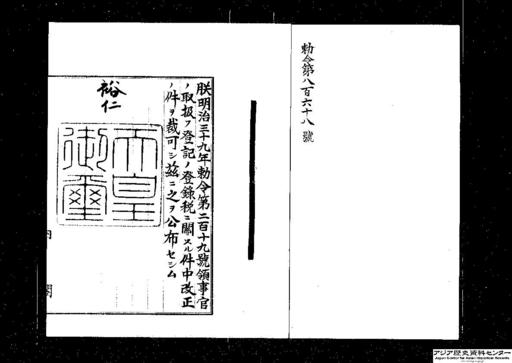 勅令第八百六十八號
朕明治三十九年勅令第二百十九號領事官
ノ取扱フ登記ノ登錄稅ニ關スル件中改正
ノ件ヲ裁可シ玆ニ之ヲ公布セシム
裕仁
天皇
御璽
内閣
アジア歴史資料センター
Japan Center for Asian Historical Records